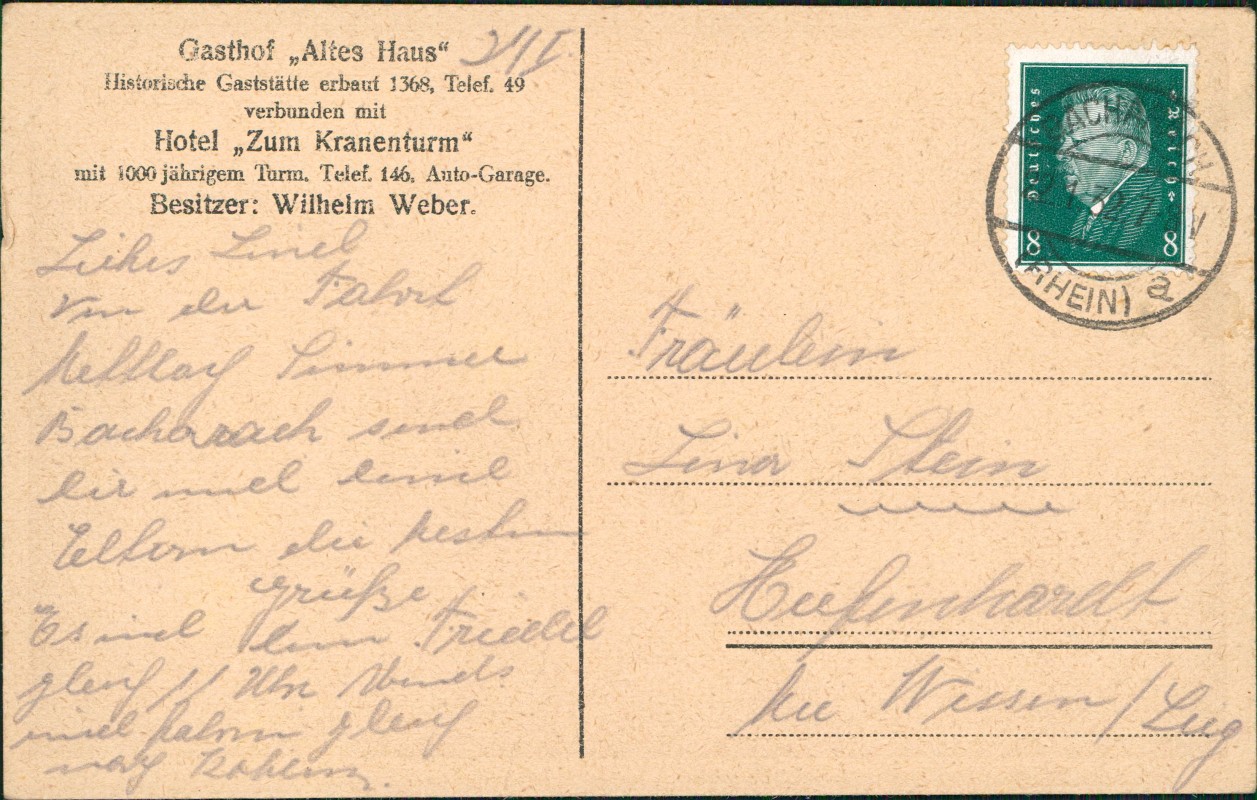 Gasthof „Altes Haus“
Historische Gaststätte erbaut 1368, Telef. 49
verbunden mit
Hotel „Zum Kranenturm“
mit 1000 jährigem Turm. Telef. 146. Auto-Garage.
Besitzer: Wilhelm Weber.
Liebes Linel
Von der Fahrt
Simmer
Bacharach send
dir und deine
Eltern die besten
Grüße
Es ist
11 Uhr Abends
und fahrn gleich
nach
Deutsches Reich
8 8
BACHARACH
(RHEIN) a
Fräulein
Lina Stein
Hufenhardt
bei Wissen/Sieg